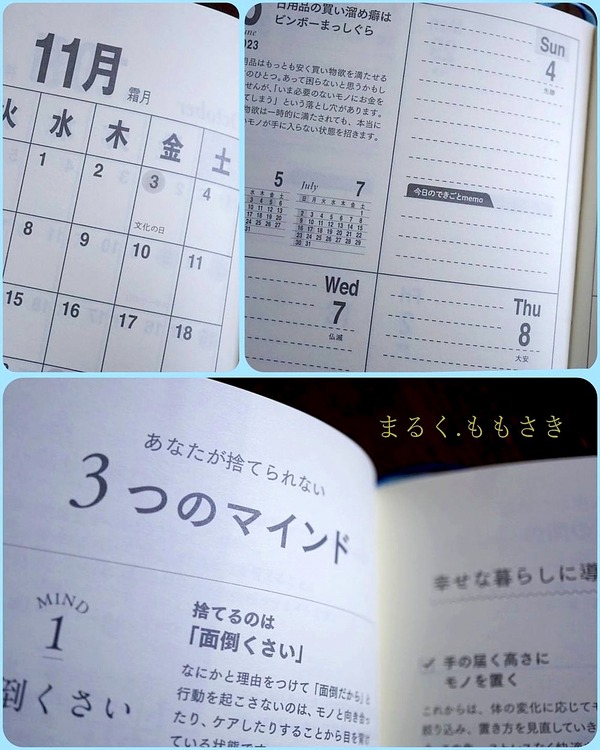 11月
霜月
火 水 木 金 土
1 2 3 4
文化の日
8 9 10 11
15 16 17 18
日用品の買い溜め癖は
ピンボーまっしぐら
2023
用品はもっとも安く買い物欲を満たせる
のひとつ。あって困らないと思うかもし
せんが、「いま必要のないモノにお金を
てしまう」という落とし穴があります。
物欲は一時的に満たされても、本当に
いモノが手に入らない状態を招きます。
5
July 7
Sun
4
先勝
今日のできごとmemo
Wed
7
仏滅
Thu
8
大安
まるく.ももさき
あなたが捨てられない
3つのマインド
MIND
1
倒くさい
捨てるのは
「面倒くさい」
なにかと理由をつけて「面倒だから」と
行動を起こさないのは、モノと向き合っ
たり、ケアしたりすることから目を背け
ている状態です
幸せな暮らしに導
手の届く高さに
モノを置く
これからは、体の変化に応じてモ
絞り込み、置き方を見直していき